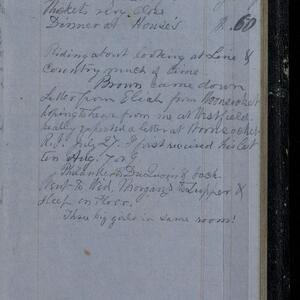 Tickets
Dinner at Howie's .60
Riding about looking at Line &
Country much of time.
Brown came down
Letter from Elijah from Woonsocket
hoping to hear from me at Westfield.
really expected a letter at Woonsocket
R.I. July 27. I first received his last
on Aug. 7 or 8
&
Went to Wid. Morgan's to Supper &
Sleep on Floor.
Three big gals in same room!